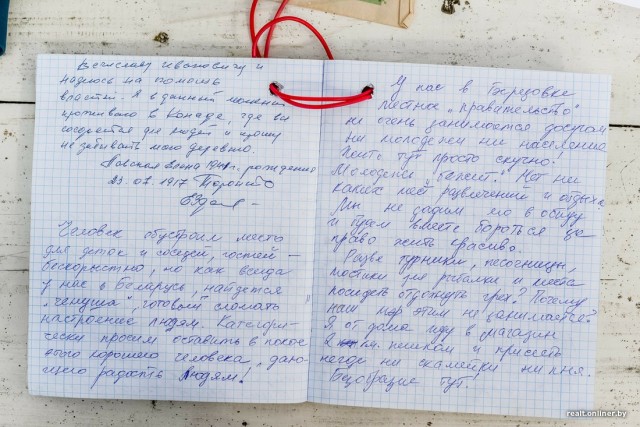 Вячеславу Ивановичу и
надеюсь на помощь
властей. А в данный момент
проживаю в Канаде, где вы
для людей и прошу
не забывать мою деревню.
рождения
23.07.1917 Торонто
Человек обустроил место
для деток и соседей, гостей –
бескорыстно, но как всегда
у нас в Беларусь, найдется
"ченуша", готовый сломать
настроение людям. Категори-
чески просим оставить в покое
этого хорошего человека, даю-
щего радость людям!
У нас в Бередовке
местное "правительство"
не очень занимается досугом
ни молодежи ни населения.
Жить тут просто скучно!
Молодежь "балдеет". Нет ни-
каких мест развлечений и отдыха.
Мы не дадим его в обиду
и будем вместе бороться за
право жить красиво.
Разве турники, песочницы,
мостики для рыбалки и места
посидеть отдохнуть грех? Почему
наш этим не занимается?
Я от дома иду в магазин
2 км. пешком и присесть
негде ни скамейки ни пня.
Безобразие тут!
realt.onliner.by